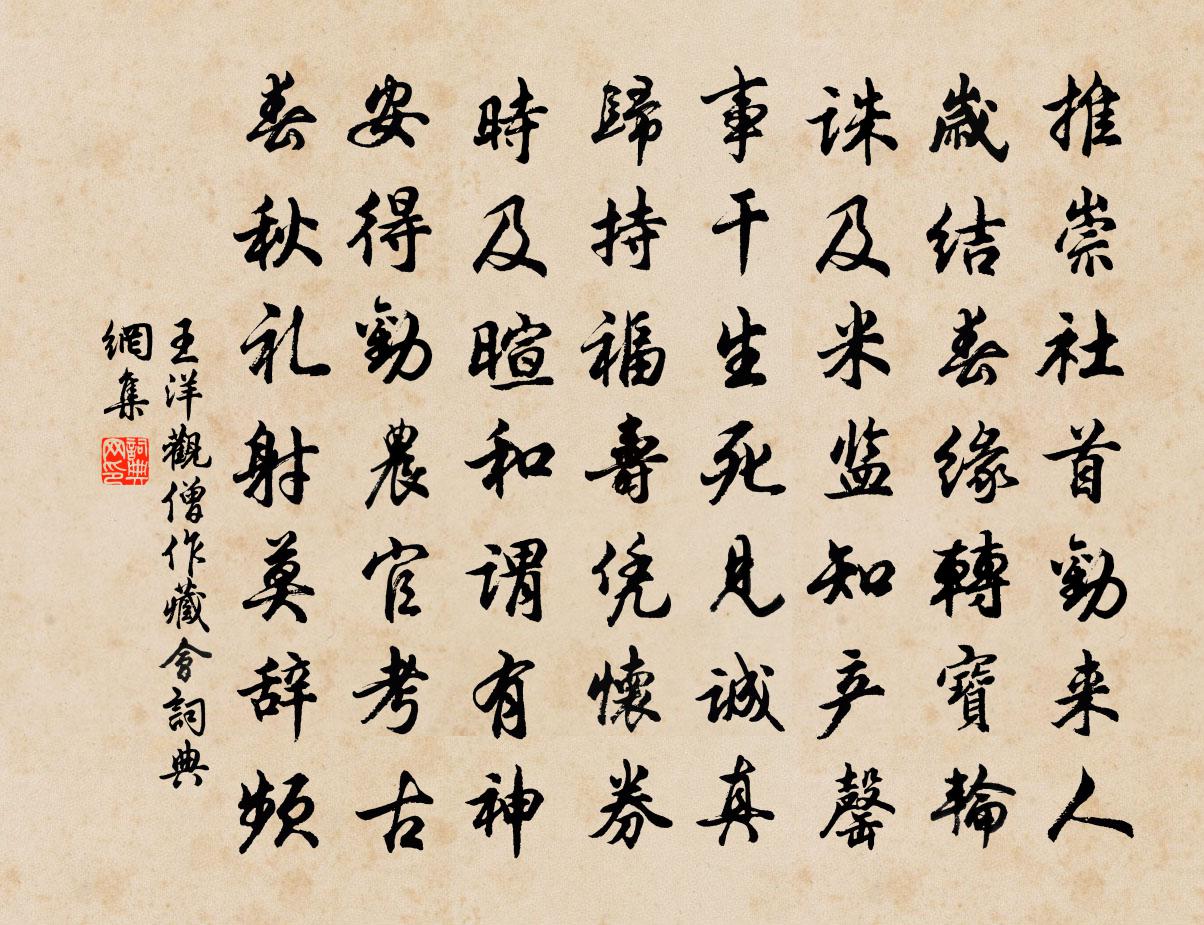 推崇社首勸来人
歲结春缘轉寶輪
诛及米监知产罄
事干生死見诚真
歸持福壽凭懷券
時及暄和谓有神
安得勸農官考古
春秋礼射莫辞频
王洋觀僧作藏會詞典
網集
詞典網印